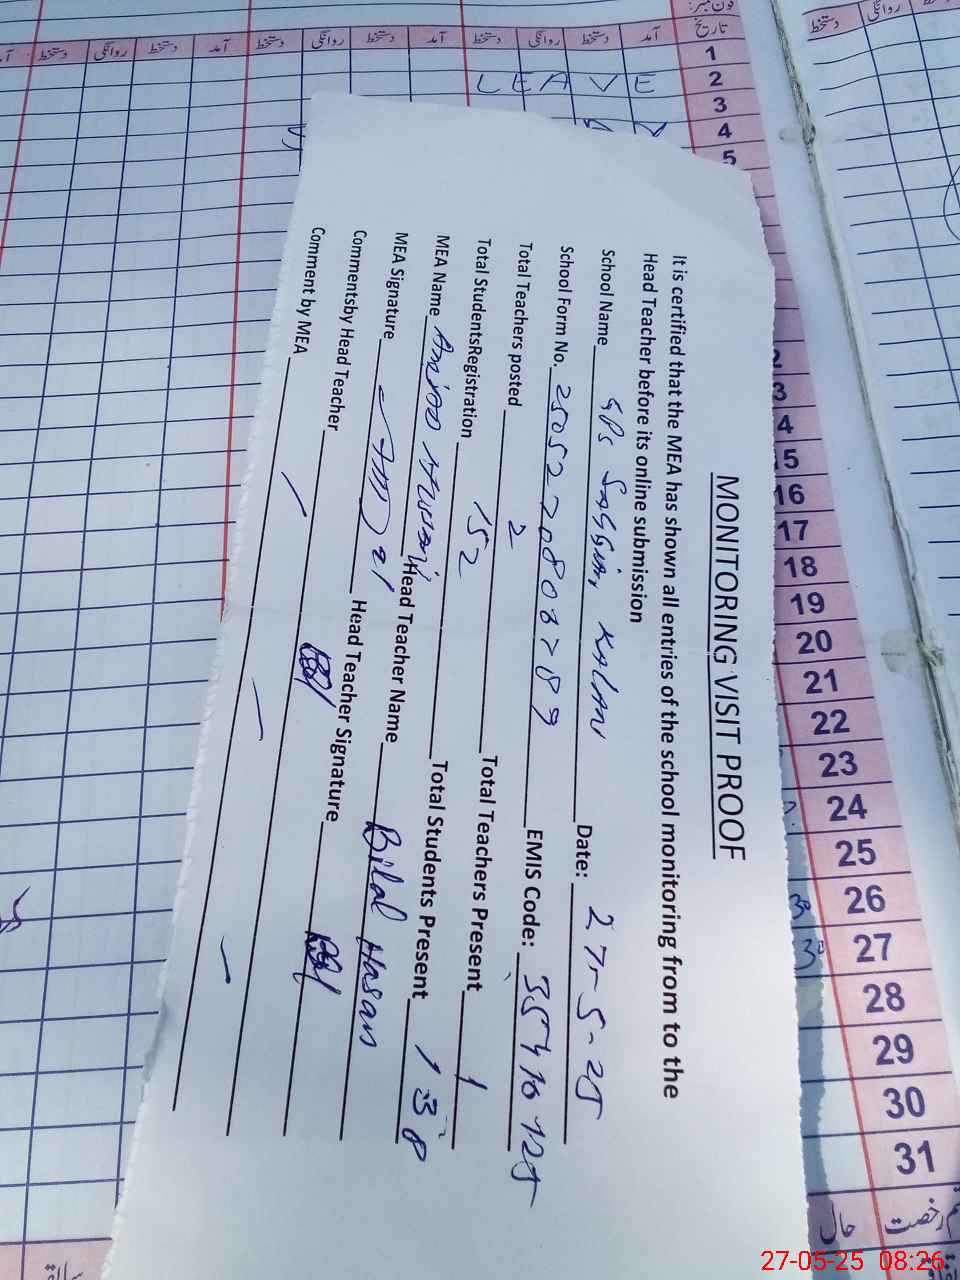 MONITORING VISIT PROOF
It is certified that the MEA has shown all entries of the school monitoring from to the
Head Teacher before its online submission
School Name GPS Kalan Date: 27-5-25
School Form No. EMIS Code: 35410125
Total Teachers posted 2 Total Teachers Present 1
Total StudentsRegistration 152 Total Students Present 138
MEA Name Head Teacher Name Bilal Hasan
MEA Signature Head Teacher Signature
Commentsby Head Teacher
Comment by MEA
فون نمبر:
تاریخ آمد دستخط روانگی دستخط آمد دستخط روانگی دستخط آمد دستخط روانگی دستخط
روانگی دستخط
1
2 LEAVE
3
4
5
16
17
18
19
20
21
22
23
24
25
26
27
28
29
30
31
رخصت حال
سابقہ
27-05-25 08:26